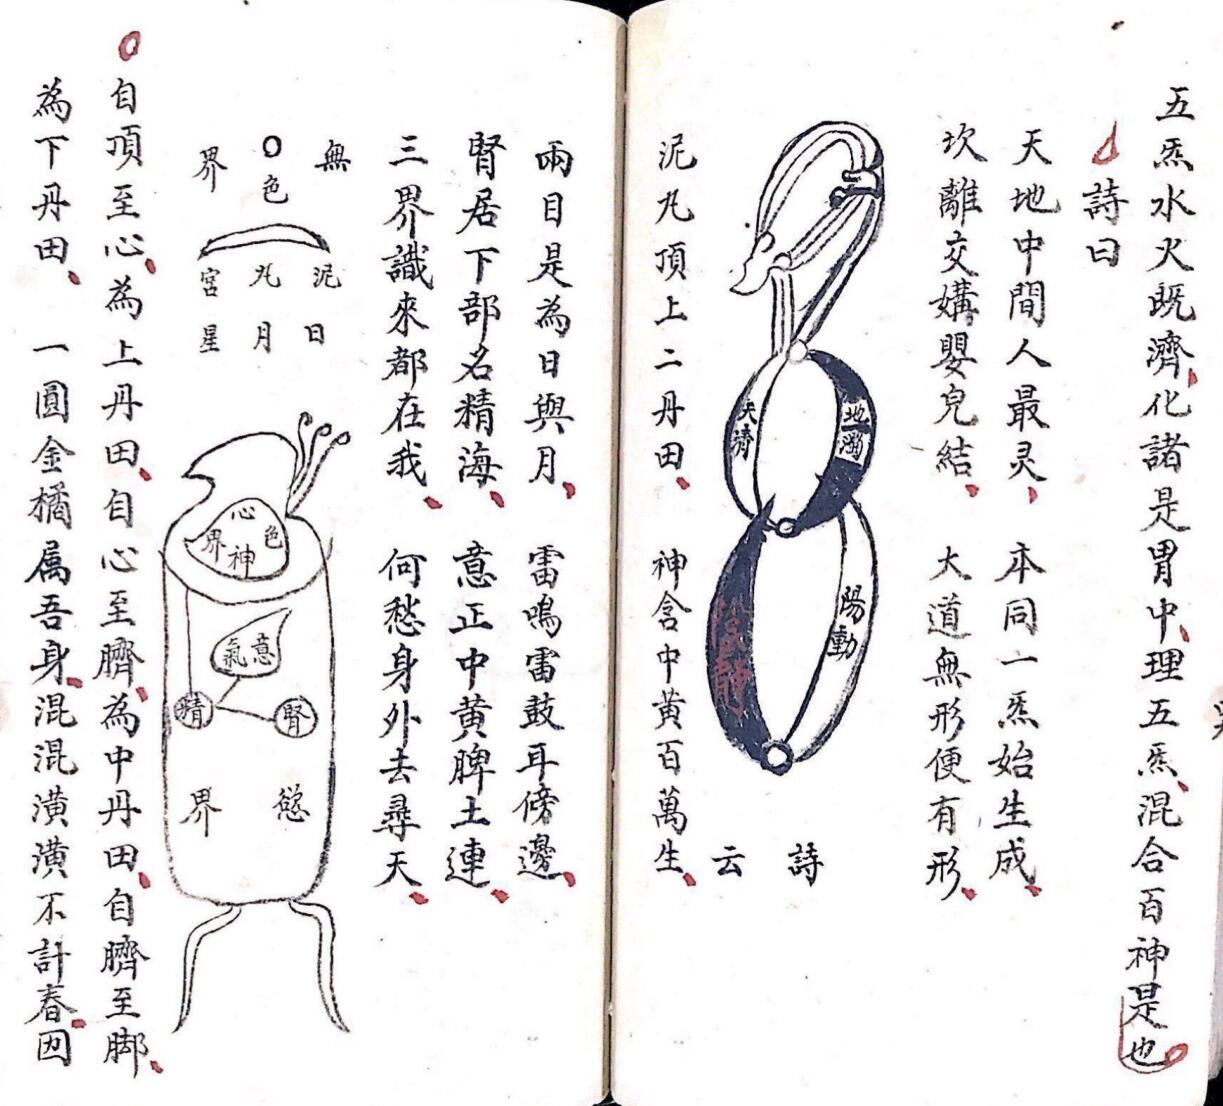 五炁水火既濟化諸是胃中理五炁混合百神是也
詩曰
天地中間人最灵 本同一炁始生成
坎離交媾嬰兒結 大道無形便有形
地濁
天清
陽動
陰靜
詩云
泥九頂上二丹田 神含中黃百萬生
兩目是為日與月 雷鳴雷鼓耳傍邊
腎居下部名精海 意正中黃脾土連
三界識來都在我 何愁身外去尋天
無色界
泥九宮
日月星
心神
色界
意氣
腎
精
慾界
自頂至心為上丹田自心至臍為中丹田自臍至脚
為下丹田 一圓金橘属吾身混混潢潢不計春因